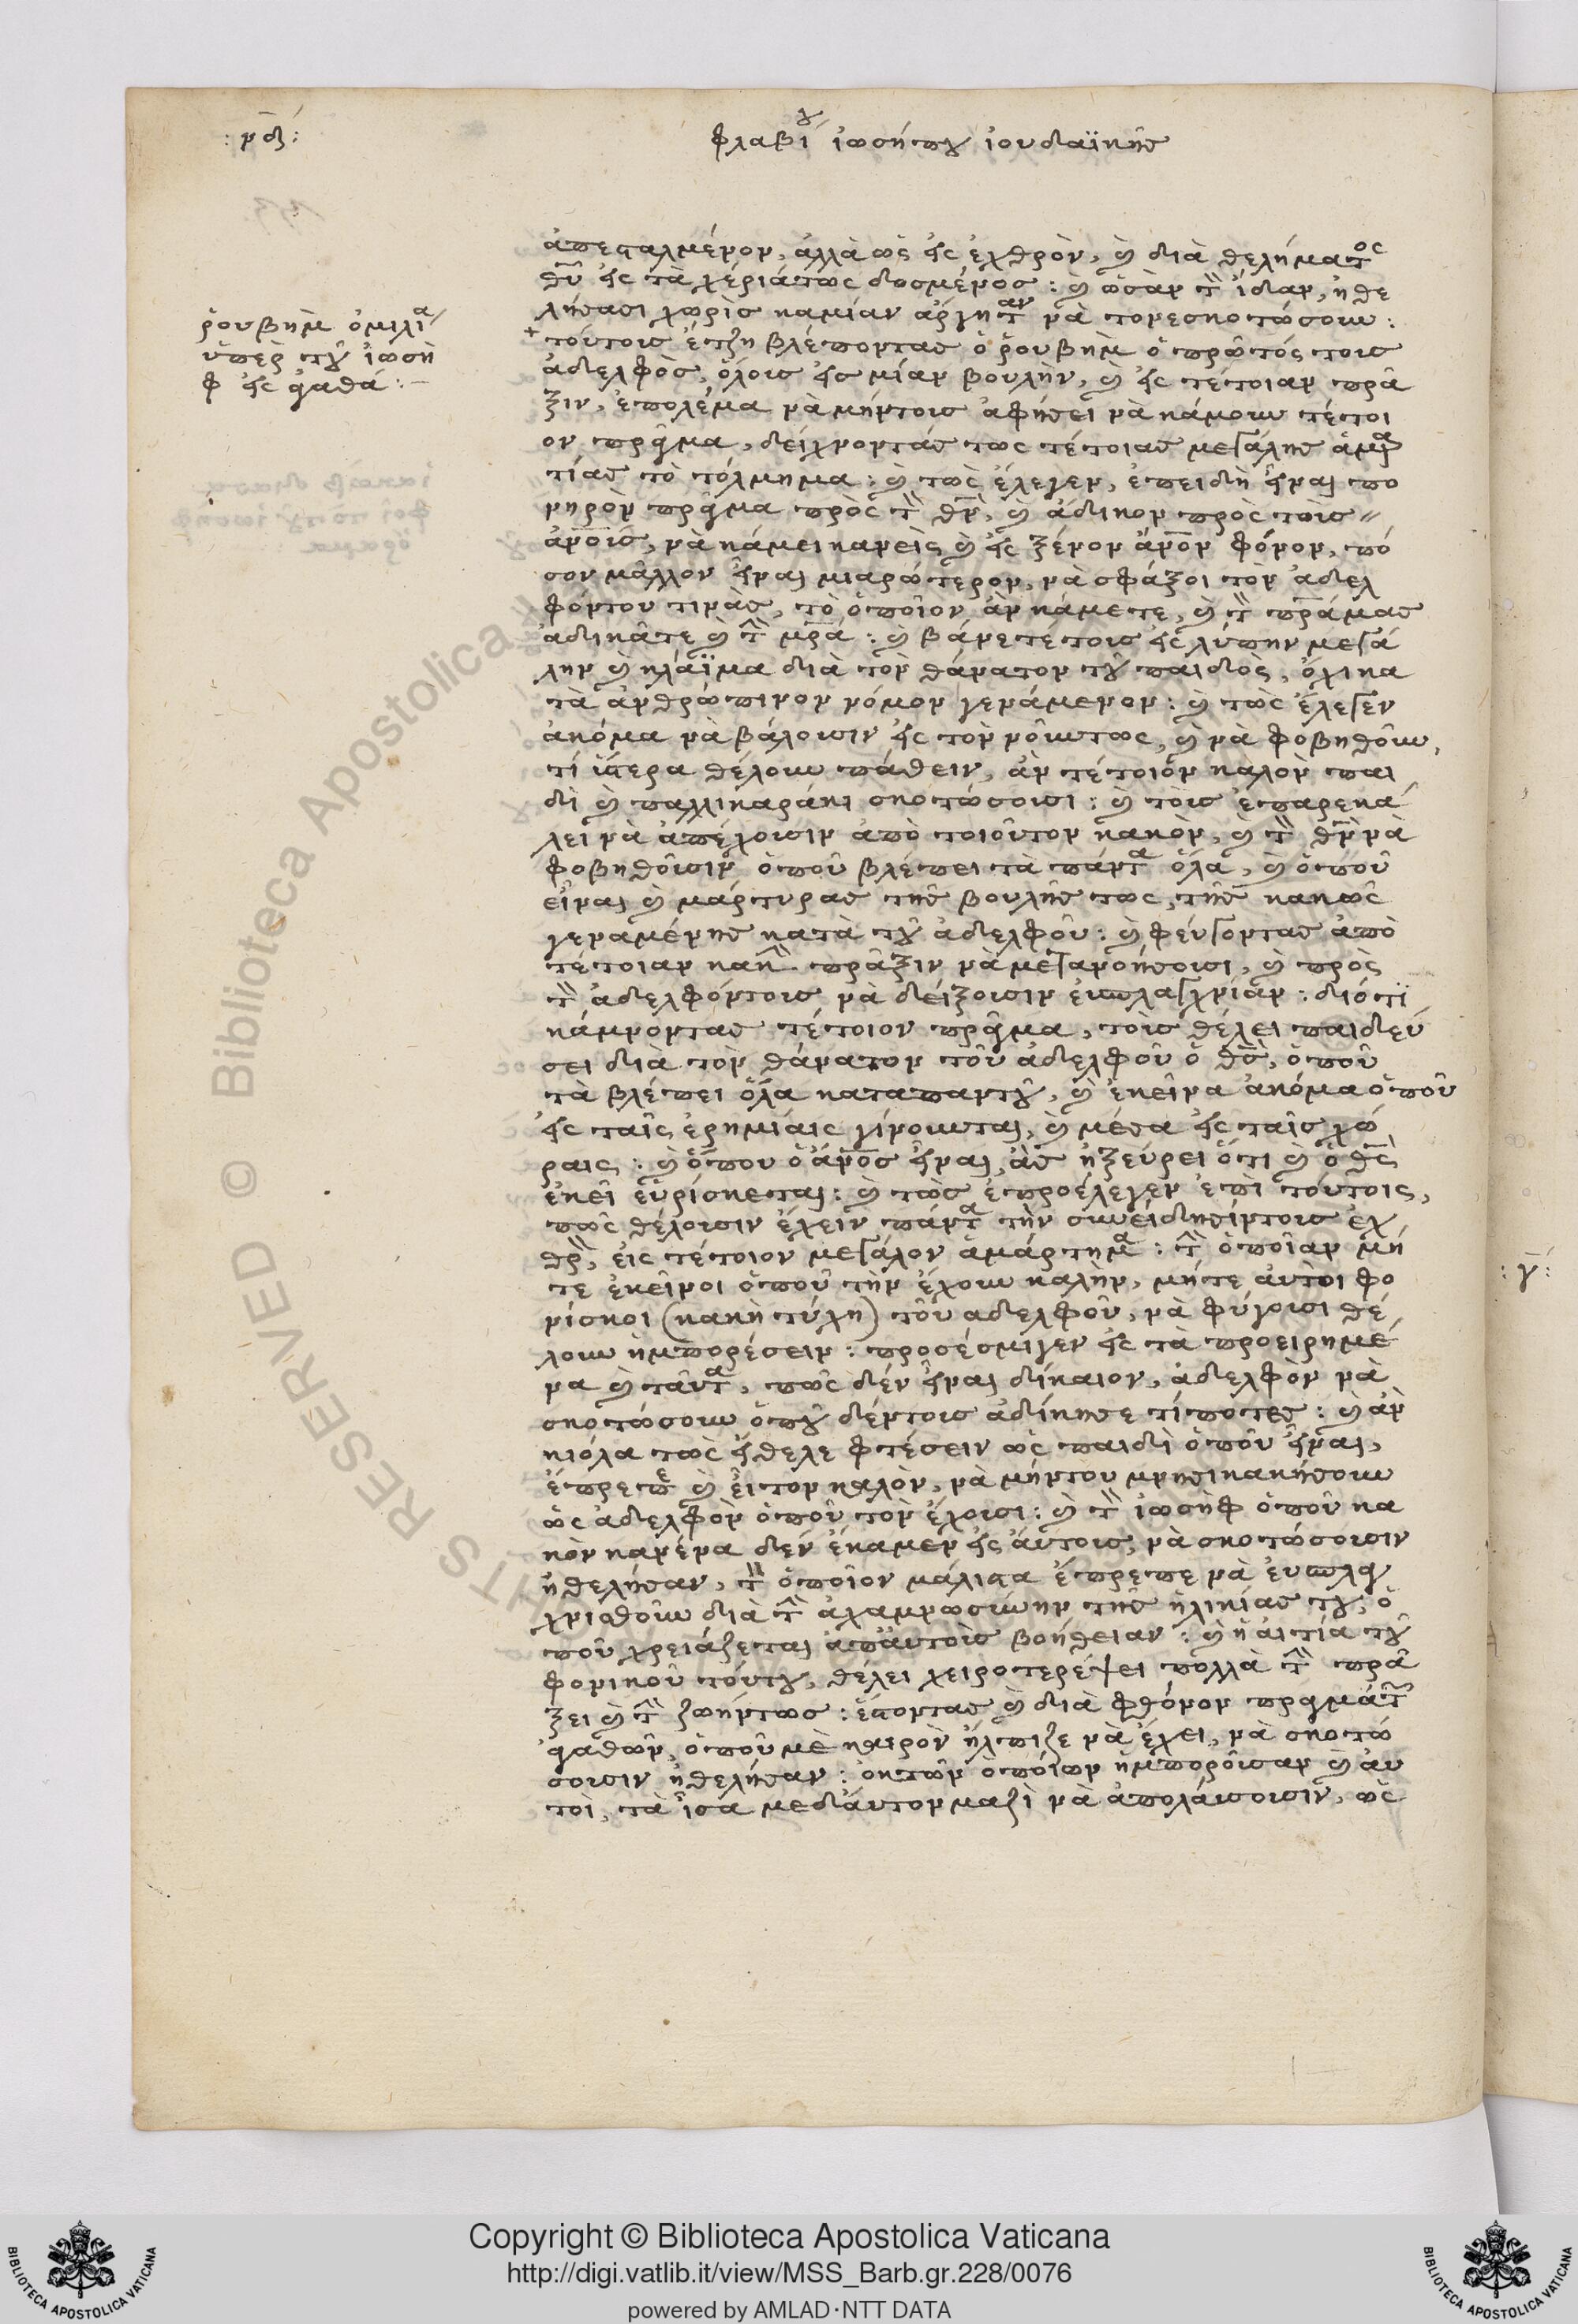 : ρδ :
φλαβίου ἰωσήπου ἰουδαϊκῆς
ῥουβὴμ ὁμιλία
ὑπὲρ τοῦ ἰωσὴ
φ εἰς
ἀπεσταλμένον, ἀλλὰ ὡς εἰς ἐχθρὸν, καὶ διὰ θελήματος
θῦ εἰς τὰ χέριάτως δοσμένος : καὶ ὡσὰν τὸν ἴδαν, ἠθε
λήσασι χωρὶς καμίαν ἀργητὰν νὰ τονεσκοτώσουν :
+ τούτοις ἔτζη βλέποντας ὁ ῥουβὴμ ὁ πρῶτός τοις
ἀδελφὸς, ὅλοις εἰς μίαν βουλὴν, καὶ εἰς τέτοιαν πρᾶ
ξιν, ἐπολέμα νὰ μήντοις ἀφήσει νὰ κάμουν τέτοι
ον πρᾶγμα, δείχνοντάς τως τέτοιας μεγάλης ἁμαρ
τίας τὸ τόλμημα : καὶ τὼς ἔλεγεν, ἐπειδὴ εἶναι πο
νηρὸν πρᾶγμα πρὸς τὸν θν, καὶ ἄδικον πρὸς τοὶς
ἀνοις, νὰ κάμει κανεὶς καὶ εἰς ξένον ἄνον φόνον, πό
σον μᾶλλον εἶναι μιαρώτερον, νὰ σφάξοι τὸν ἀδελ
φόντου τινὰς, τὸ ὁποῖον ἀν κάμετε, καὶ τὸν πρά μας
ἀδικᾶτε καὶ τὴν μρά : καὶ βάνετέ τοις εἰς λύπην μεγά
λην καὶ κλάϊμα διὰ τὸν θάνατον τοῦ παιδὸς, ὄχι κα
τὰ ἀνθρώπινον νόμον γενάμενον : καὶ τὼς ἔλεγεν
ἀκόμα νὰ βάλοισιν εἰς τὸν νοῦντως, καὶ νὰ φοβηθοῦν,
τί ὕστερα θέλουν πάθειν, ἀν τέτοιον καλὸν παι
δὶ καὶ παλλικαράκι σκοτώσοισι : καὶ τοὶς ἐπαρεκά
λει νὰ ἀπέχοισιν ἀπὸ τοιοῦτον κακὸν, καὶ τὸν θν νὰ
φοβηθοῖσιν ὁποῦ βλέπει τὰ πάντα ὅλα, καὶ ὁποῦ
εἶναι καὶ μάρτυρας τῆς βουλῆς τως, τῆς κακῶς
γεναμένης κατὰ τοῦ ἀδελφοῦ : καὶ φεύγοντας ἀπὸ
τέτοιαν κακὴν πρᾶξιν νὰ μετανοήσοισι, καὶ πρὸς
τὸν ἀδελφόντοις νὰ δείξοισιν εὐσπλαγχνίαν : διότι
κάμνοντας τέτοιον πρᾶγμα, τοὶς θέλει παιδεύ
σει διὰ τὸν θάνατον τοῦ ἀδελφοῦ ὁ θς, ὁποῦ
τὰ βλέπει ὅλα καταπαντοῦ, καὶ ἐκεῖνα ἀκόμα ὁποῦ
εἰς ταῖς ἐρημιάις γίνουνται, καὶ μέσα εἰς ταῖς χώ
ραις : καὶ ὅπου ὁ ἄνος εἶναι, ἂς ἠξεύρει ὅτι καὶ ὁ θς
ἐκεῖ εὑρίσκεται : καὶ τὼς ἐπροέλεγεν ἐπὶ τούτοις,
πῶς θέλοισιν ἔχειν πάντα τὴν συνείδησίντοις ἐχ
θρὸν, εἰς τέτοιον μεγάλον ἁμάρτημα : τὴν ὁποῖαν μή
τε ἐκεῖνοι ὁποῦ τὴν ἔχουν καλὴν, μήτε αὐτοὶ φο
νίσκοι (κακὴ τύχη) τοῦ ἀδελφοῦ, νὰ φύγοισι θέ
λουν ἠμπορέσειν : προσέσμιγεν εἰς τὰ προειρημέ
να καὶ ταῦτα, πῶς δὲν εἶναι δίκαιον, ἀδελφὸν νὰ
σκοτώσουν ὁποῦ δέντοις ἀδίκησε τίποτες : καὶ ἀν
κιόλα τὼς ἤθελε φτέσειν ὡς παιδὶ ὁποῦ εἶναι,
ἔπρεπε καὶ εἶτον καλὸν, νὰ μήντου μνησικακήσουν
ὡς ἀδελφὸν ὁποῦ τὸν ἔχοισι : καὶ τὸν ἰωσὴφ ὁποῦ κα
κὸν κανένα δὲν ἔκαμεν εἰς αὐτοις, νὰ σκοτώσοισιν
ἠθελήσαν, τὸν ὁποῖον μάλιστα ἔπρεπε νὰ εὐσπλαγ
χνισθοῦν διὰ τὴν ἀχαμνωσύνην τῆς ἡλικίας του, ὁ
ποῦ χρειάζεται ἀπαυτοὶς βοήθειαν : καὶ ἡ αἰτία τοῦ
φονικοῦ τούτου, θέλει χειροτερέψει πολλὰ τὴν πρᾶ
ξει καὶ τὴν ζωήντως : ἔστοντας καὶ διὰ φθόνον πραγμάτων
ἀγαθῶν, ὁποῦ μὲ καιρὸν ἤλπιζε νὰ ἔχει, νὰ σκοτώ
σοισιν ἠθελήσαν : ἐκ τῶν ὁποίων ἠμποροῦσαν καὶ αὐ
τοὶ, τὰ ἴσα μεδαύτον μαζὶ νὰ ἀπολαύσοισιν, ὡς
: γ :
© Biblioteca Apostolica
RIGHTS RESERVED
Copyright © Biblioteca Apostolica Vaticana
http://digi.vatlib.it/view/MSS_Barb.gr.228/0076
powered by AMLAD·NTT DATA
BIBLIOTECA APOSTOLICA VATICANA
BIBLIOTECA APOSTOLICA VATICANA